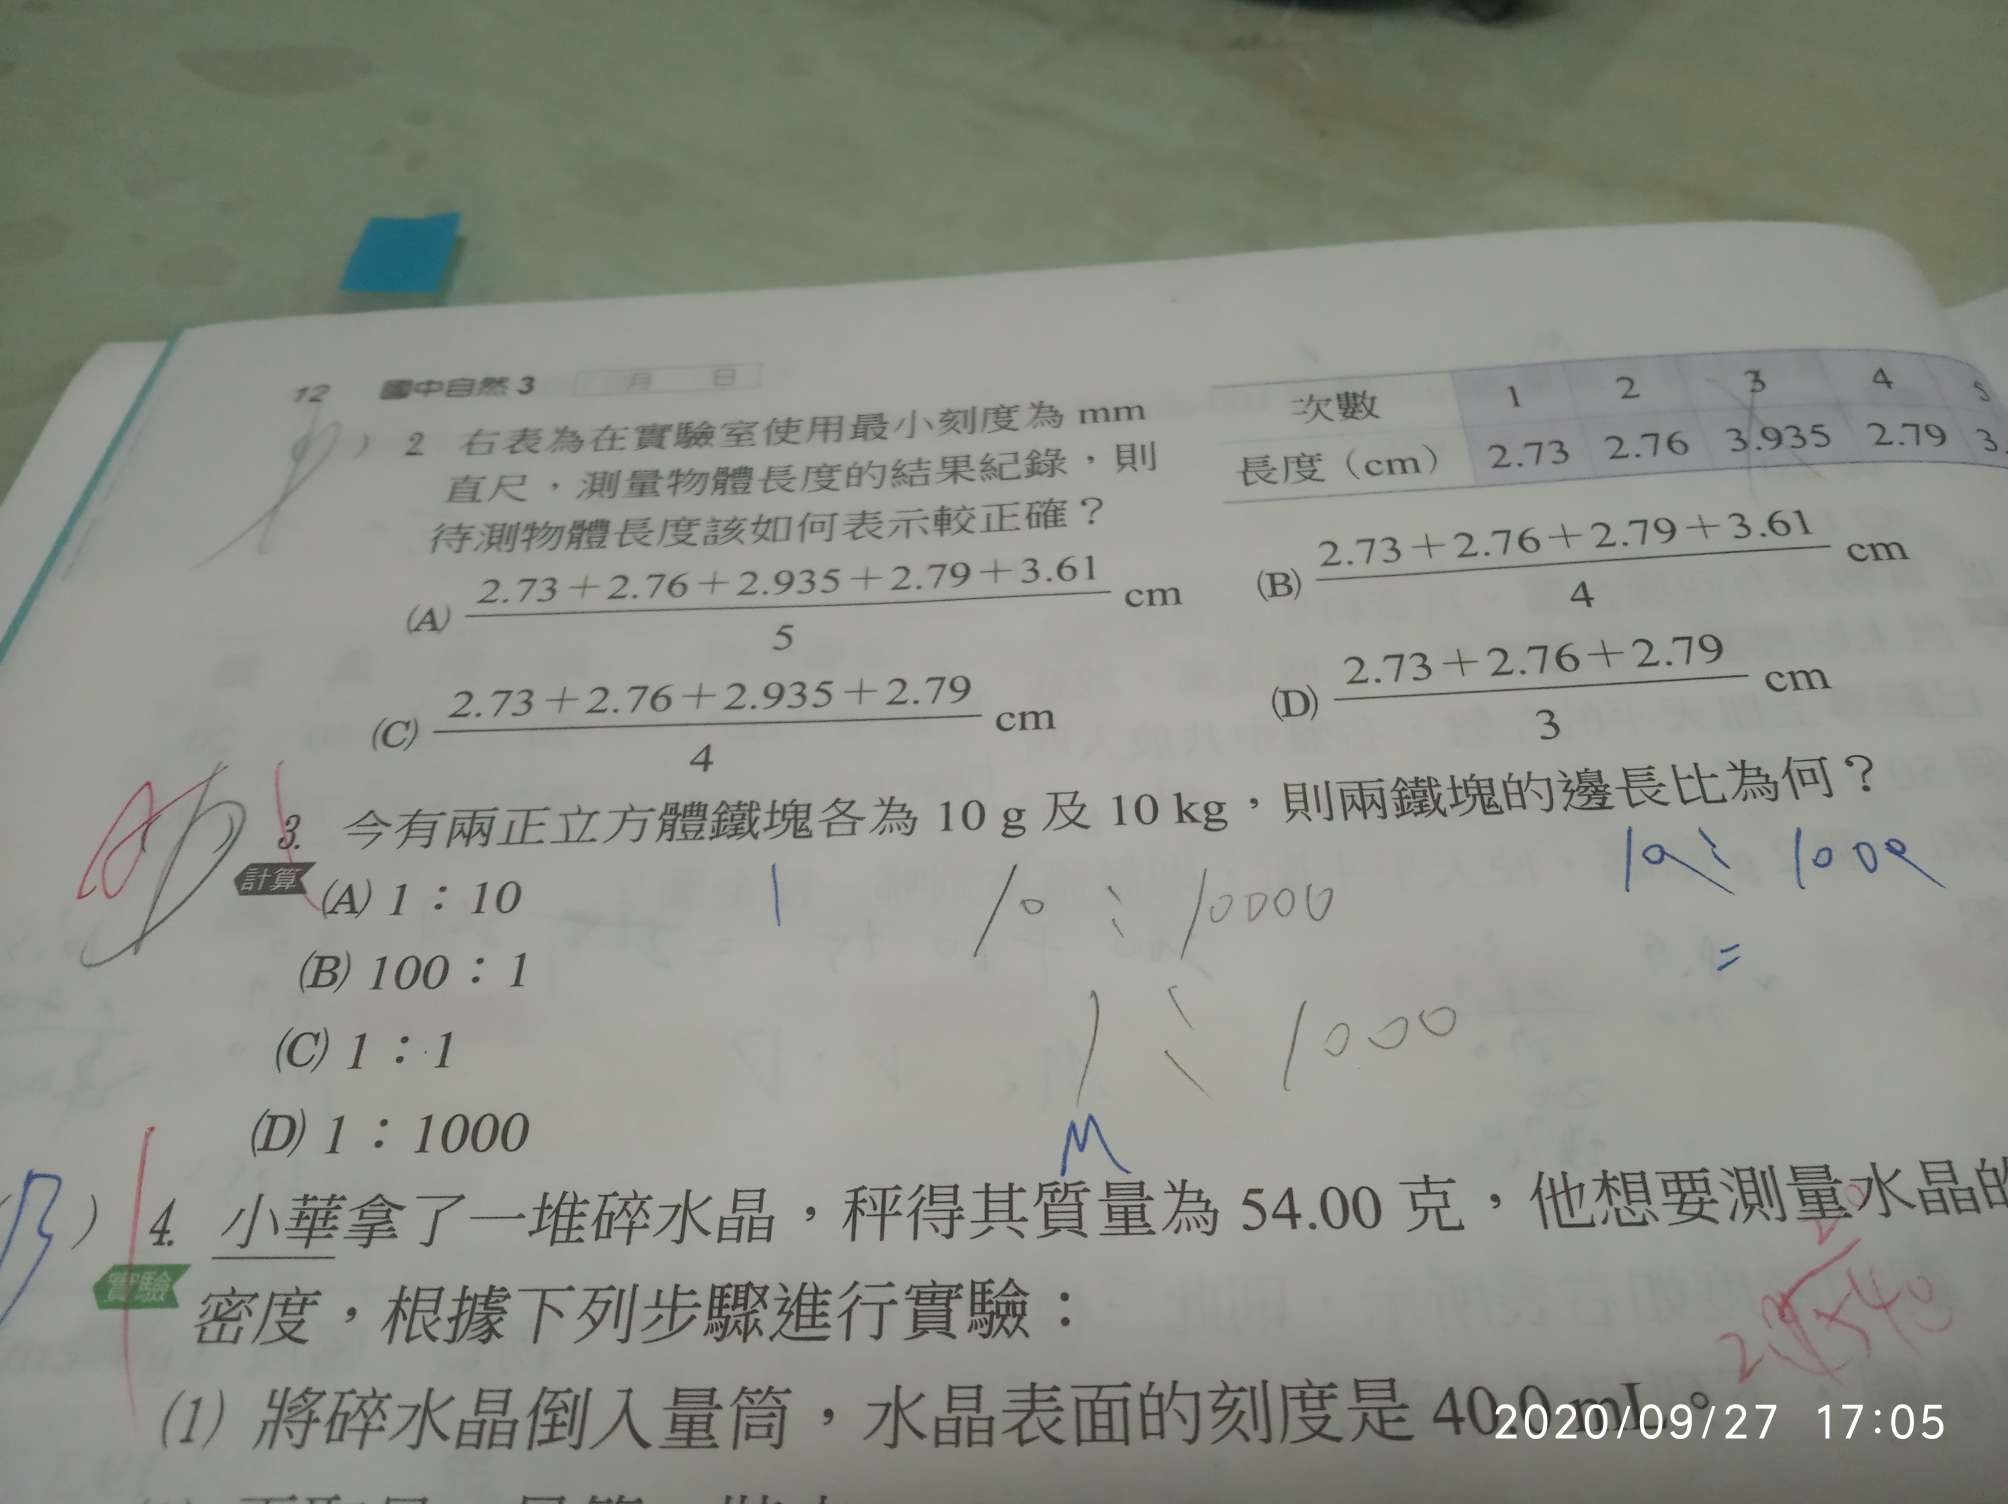 12 國中自然 3 月 日
) 2 右表為在實驗室使用最小刻度為 mm
直尺，測量物體長度的結果紀錄，則
待測物體長度該如何表示較正確？
次數 1 2 3 4 5
長度（cm） 2.73 2.76 3.935 2.79 3.
(A) 2.73＋2.76＋2.935＋2.79＋3.61 / 5 cm
(B) 2.73＋2.76＋2.79＋3.61 / 4 cm
(C) 2.73＋2.76＋2.935＋2.79 / 4 cm
(D) 2.73＋2.76＋2.79 / 3 cm
3. 今有兩正立方體鐵塊各為 10 g 及 10 kg，則兩鐵塊的邊長比為何？
計算
(A) 1：10
(B) 100：1
(C) 1：1
(D) 1：1000
10 : 10000
1 : 1000
10 : 1000
=
M
(B) 4. 小華拿了一堆碎水晶，秤得其質量為 54.00 克，他想要測量水晶的
實驗
密度，根據下列步驟進行實驗：
(1) 將碎水晶倒入量筒，水晶表面的刻度是 40.0 mL。
2020/09/27 17:05